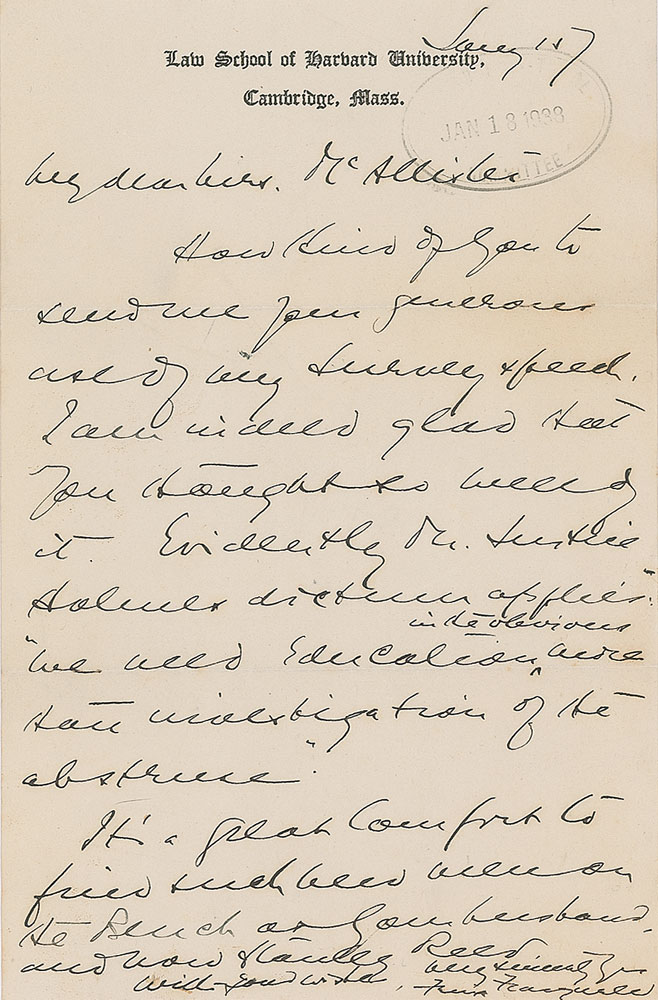 Jany 15/
Law School of Harvard University,
Cambridge, Mass.
JAN 18 1938
My dear Mrs. McAllister
How kind of you to
send me your generous
use of my Survey speech.
I am indeed glad that
you thought so well of
it. Evidently Mr. Justice
Holmes dictum applies:
"We need education in the obvious more
than investigation of the
abstruse".
It's a great comfort to
find such new men on
the Bench as your husband,
and now Stanley Reed.
With good wishes,
Very sincerely yrs
Felix Frankfurter